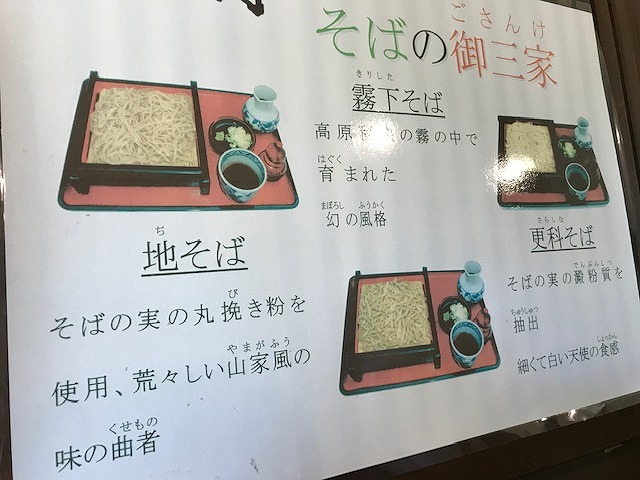 そばの御三家
ごさんけ
霧下そば
きりした
高原 の霧の中で
育まれた
はぐく
幻の風格
まぼろし ふうかく
地そば
ぢ
そばの実の丸挽き粉を
び
使用、荒々しい山家風の
やまがふう
味の曲者
くせもの
更科そば
さらしな
そばの実の澱粉質を
でんぷんしつ
抽出
ちゅうしゅつ
細くて白い天使の食感
しょっかん